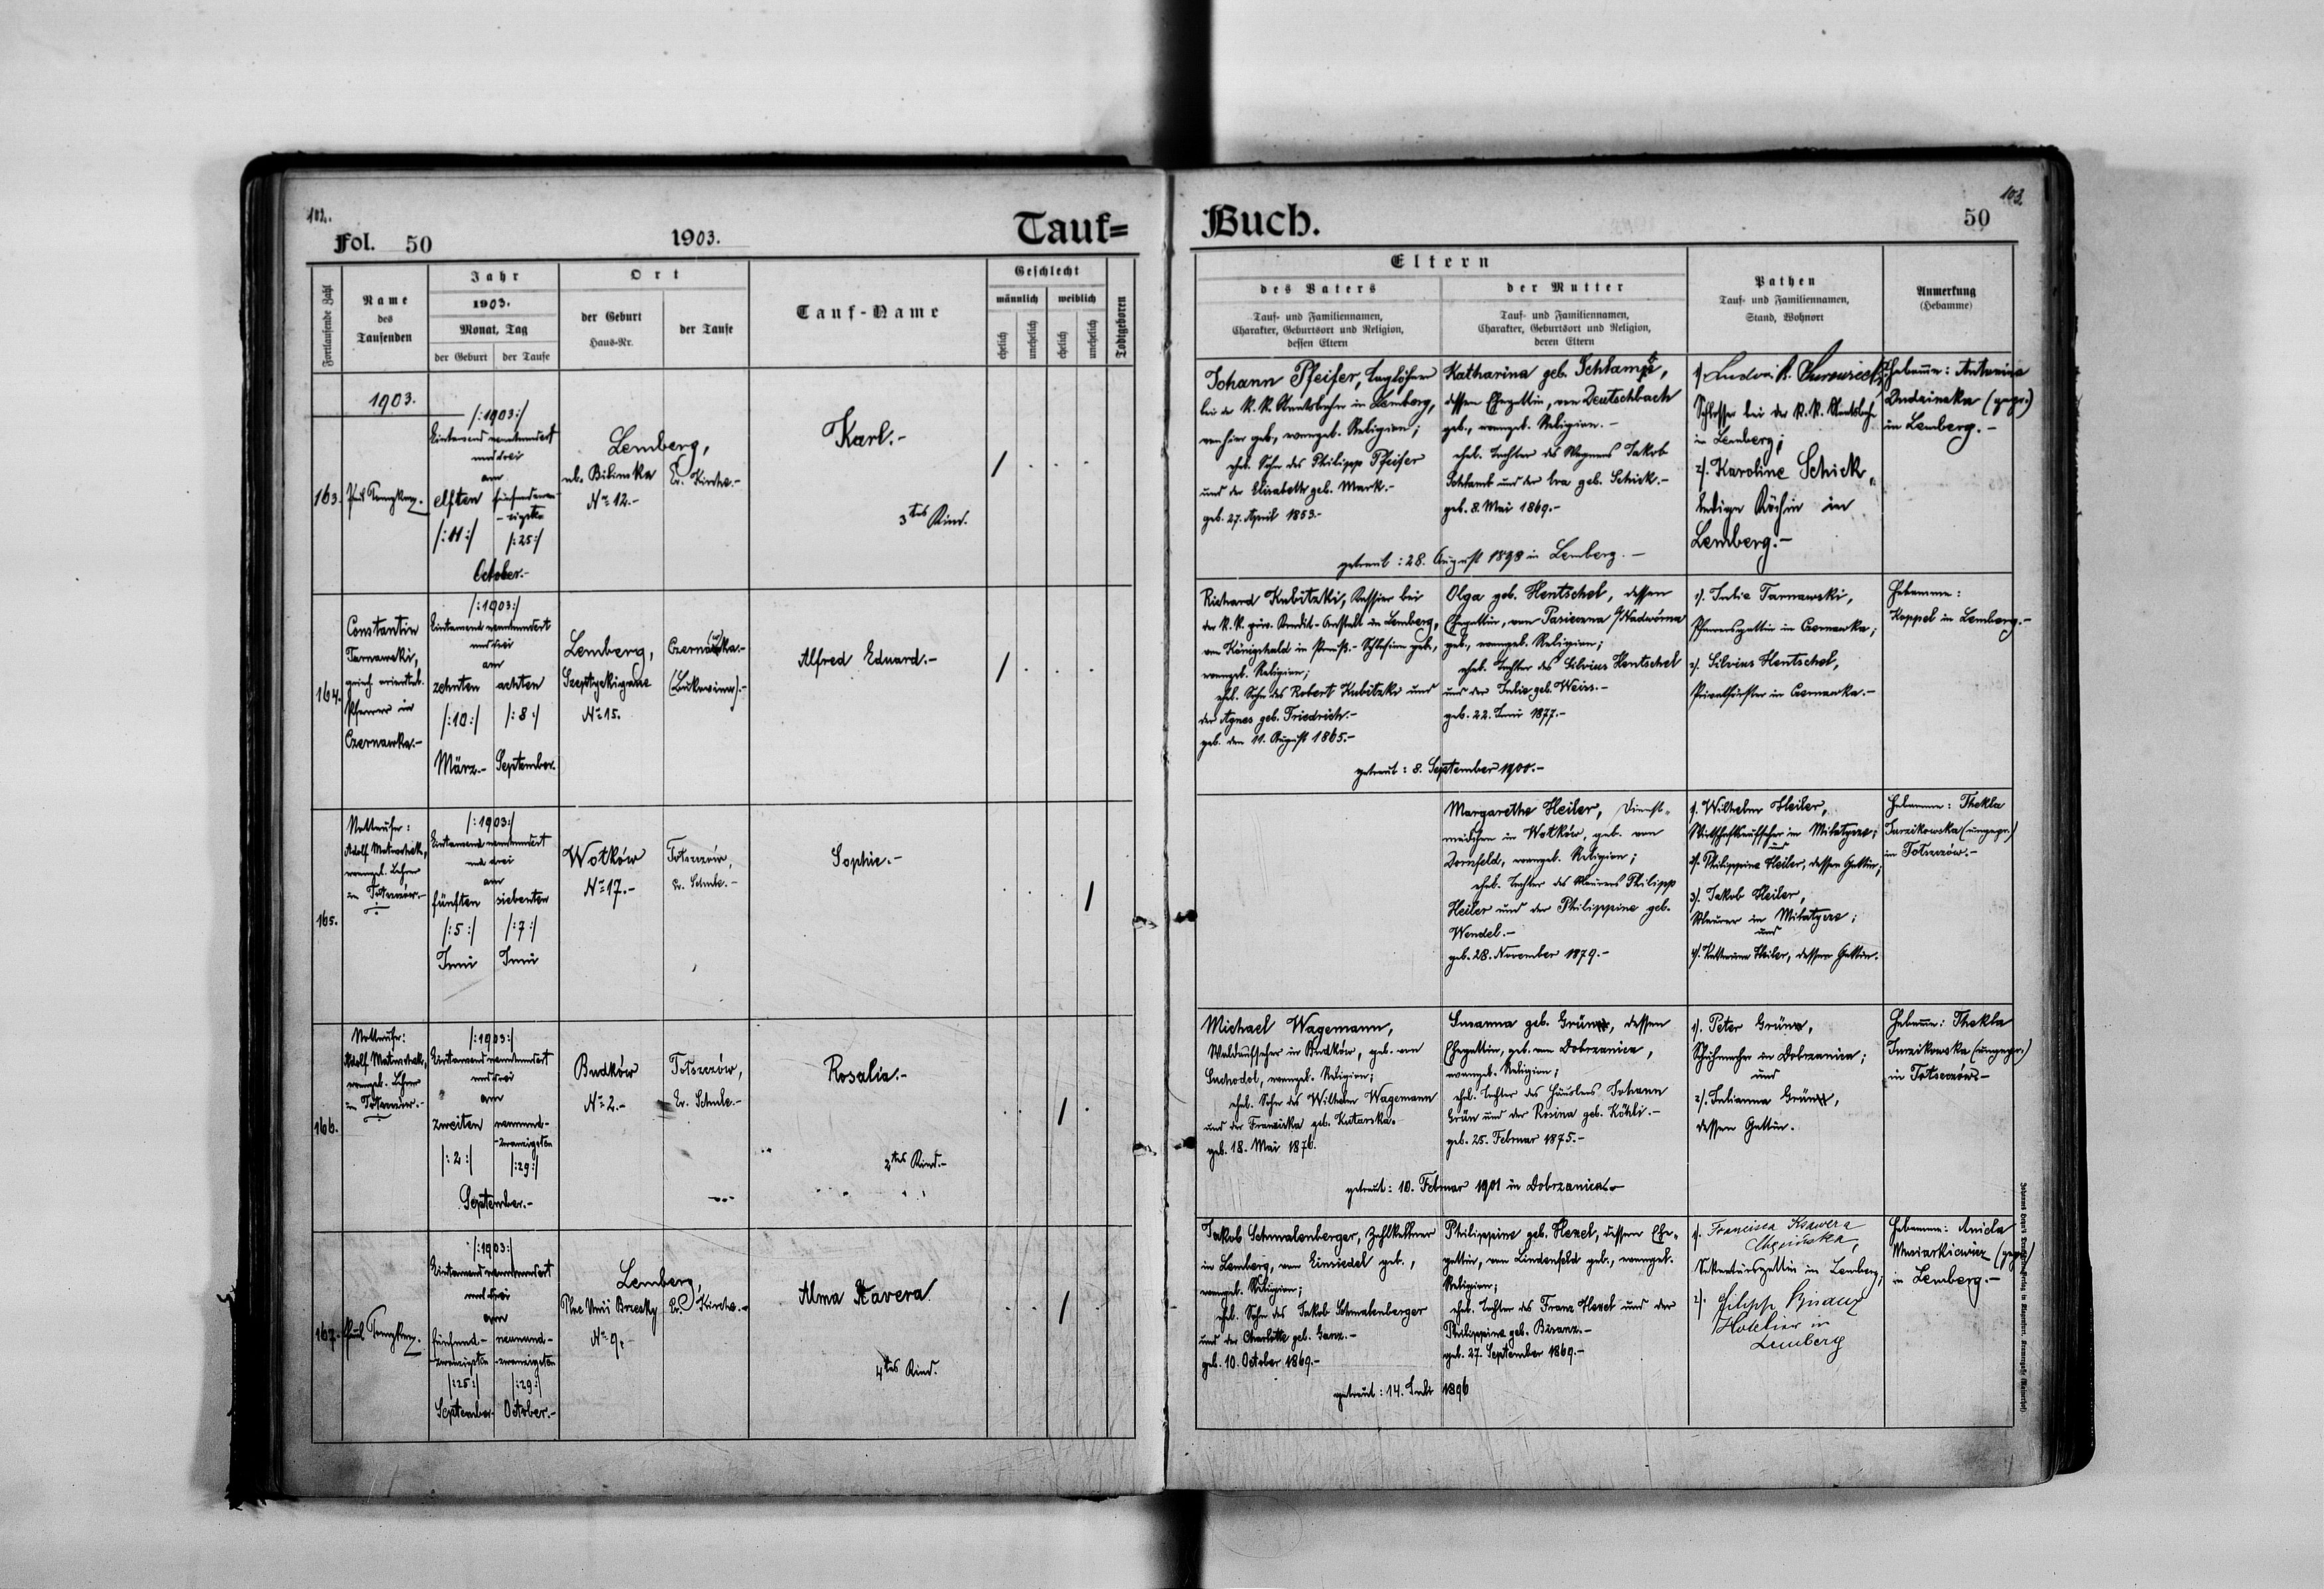 102.
Fol. 50
1903.
Tauf=
Fortlaufende Zahl
Name
des
Taufenden
Jahr
1903.
Monat, Tag
der Geburt
der Taufe
Ort
der Geburt
Haus-Nr.
der Taufe
Tauf-Name
Geschlecht
männlich
weiblich
ehelich
unehelich
ehelich
unehelich
Todtgeboren
1903.
163.
/:1903:/
Eintausend neunhundert
und drei
am
elften
/:11:/
/:25:/
October.-
Lemberg,
ul. Bilinska
No 12.-
Ev. Kirche.-
Karl.-
3tes Kind.
/
164.
Constantin
Tarnawski,
griech. oriental.
Pfarrer in
Czernawka.-
/:1903:/
Eintausend neunhundert
und drei
am
zehnten
/:10:/
März.-
achten
/:8:/
September.
Lemberg,
No 15.
Czernawka.-
(Bukowina).-
Alfred Eduard.-
/
165.
Nottaufer:
evangel. Lehrer
in Tołszczów.-
/:1903:/
Eintausend neunhundert
und drei
am
fünften
/:5:/
Juni
siebenten
/:7:/
Juni
Wołków
No 17.-
Tołszczów,
Ev. Schule.-
Sophie.-
/
166.
Nottaufer:
evangel. Lehrer
in Tołszczów.-
/:1903:/
Eintausend neunhundert
und drei
am
zweiten
/:2:/
neunund-
-zwanzigsten
/:29:/
September.-
Budków
No 2.-
Tołszczów,
Ev. Schule.-
Rosalia.-
2tes Kind.-
/
167.
/:1903:/
Eintausend neunhundert
und drei
am
fünfund-
-zwanzigsten
/:25:/
September.
neunund-
-zwanzigsten
/:29:/
October.-
Lemberg,
No 9.-
Ev. Kirche.-
Alma Xavera
4tes Kind.
/
Buch.
103.
50
Eltern
des Vaters
Tauf- und Familiennamen,
Charakter, Geburtsort und Religion,
dessen Eltern
der Mutter
Tauf- und Familiennamen,
Charakter, Geburtsort und Religion,
deren Eltern
Pathen
Tauf- und Familiennamen,
Stand, Wohnort
Anmerkung
(Hebamme)
Johann Pfeifer, Taglöhner
bei der K. K. Staatsbahn in Lemberg,
von hier geb., evangel. Religion;
ehel. Sohn des Philipp Pfeifer
und der Elisabeth geb. Mark.-
geb. 27. April 1853.-
Katharina geb. Schlamp,
dessen Ehegattin, von Deutschbach
geb., evangel. Religion.-
ehel. Tochter des Wagners Jakob
Schlamb und der Eva geb. Schick.-
geb. 8. Mai 1869.-
getraut: 28. August 1898 in Lemberg.-
Schlosser bei der K. K. Staatsbahn
in Lemberg;
2/. Karoline Schick,
ledige Köchin in
Lemberg.-
Hebamme: Antonina
Dudzinska (gepr.)
in Lemberg.-
Richard Kubitzki, Kassier bei
der K. K. priv. Kredit-Anstalt in Lemberg,
von Königshald in Preuß.-Schlesien geb.,
evangel. Religion;
ehel. Sohn des Robert Kubitzki und
der Agnes geb. Friedrich.-
geb. den 11. August 1865.-
Olga geb. Hentschel, dessen
Ehegattin, von Pasieczna /Nadwórna
geb., evangel. Religion;
ehel. Tochter des Silvius Hentschel
und der Julie geb. Weiss.-
geb. 22. Juni 1877.-
getraut: 8. September 1900.-
1/. Julie Tarnawski,
Pfarrersgattin in Czernawka;
2/. Silvius Hentschel,
Privatförster in Czernawka.-
Hebamme:
Koppel in Lemberg.-
Margarethe Heiler, Dienst-
mädchen in Wołków, geb. von
Dornfeld, evangel. Religion;
ehel. Tochter des Maurers Philipp
Heiler und der Philippine geb.
Wendel.-
geb. 28. November 1879.-
1/. Wilhelm Heiler,
Wirthschaftsaufseher in Mikołajow;
und
2/. Philippine Heiler, dessen Gattin;
3/. Jakob Heiler,
Maurer in
und
4/. Katharina Heiler, dessen Gattin.
Hebamme: Thekla
Jurzikowska (ungepr.)
in Tołszczów.-
Michael Wagemann,
Waldaufseher in Budków, geb. von
Suchodol, evangel. Religion;
ehel. Sohn des Wilhelm Wagemann
und der Franziska geb. Kutarska.
geb. 18. Mai 1876.
Susanna geb. Grün, dessen
Ehegattin, geb. von Dobrzanica,
evangel. Religion;
ehel. Tochter des Häuslers Johann
Grün und der Rosina geb. Köhli.-
geb. 25. Februar 1875.-
getraut: 10. Februar 1901 in Dobrzanica.-
1/. Peter Grün,
Schuhmacher in Dobrzanica;
und
2/. Julianna Grün,
dessen Gattin.
Hebamme: Thekla
Jurzikowska (ungepr.)
in Tołszczów.-
Jakob Schmalenberger, Zahlkellner
in Lemberg, von Einsiedel geb.,
evangel. Religion;
ehel. Sohn des Jakob Schmalenberger
und der Charlotte geb. Ganz.-
geb. 10. October 1869.-
Philippine geb. Hexel, dessen Ehe-
gattin, von Lindenfeld geb., evangel.
Religion;
ehel. Tochter des Franz Hexel und der
Philippine geb. Bisanz.-
geb. 27. September 1869.-
getraut: 14. Juli 1896
1/. Francisca Ksawera
in Lemberg;
2/. Filipp Bisanz
Hotelier in
Lemberg
Hebamme: Aniela
(gepr.)
in Lemberg.-